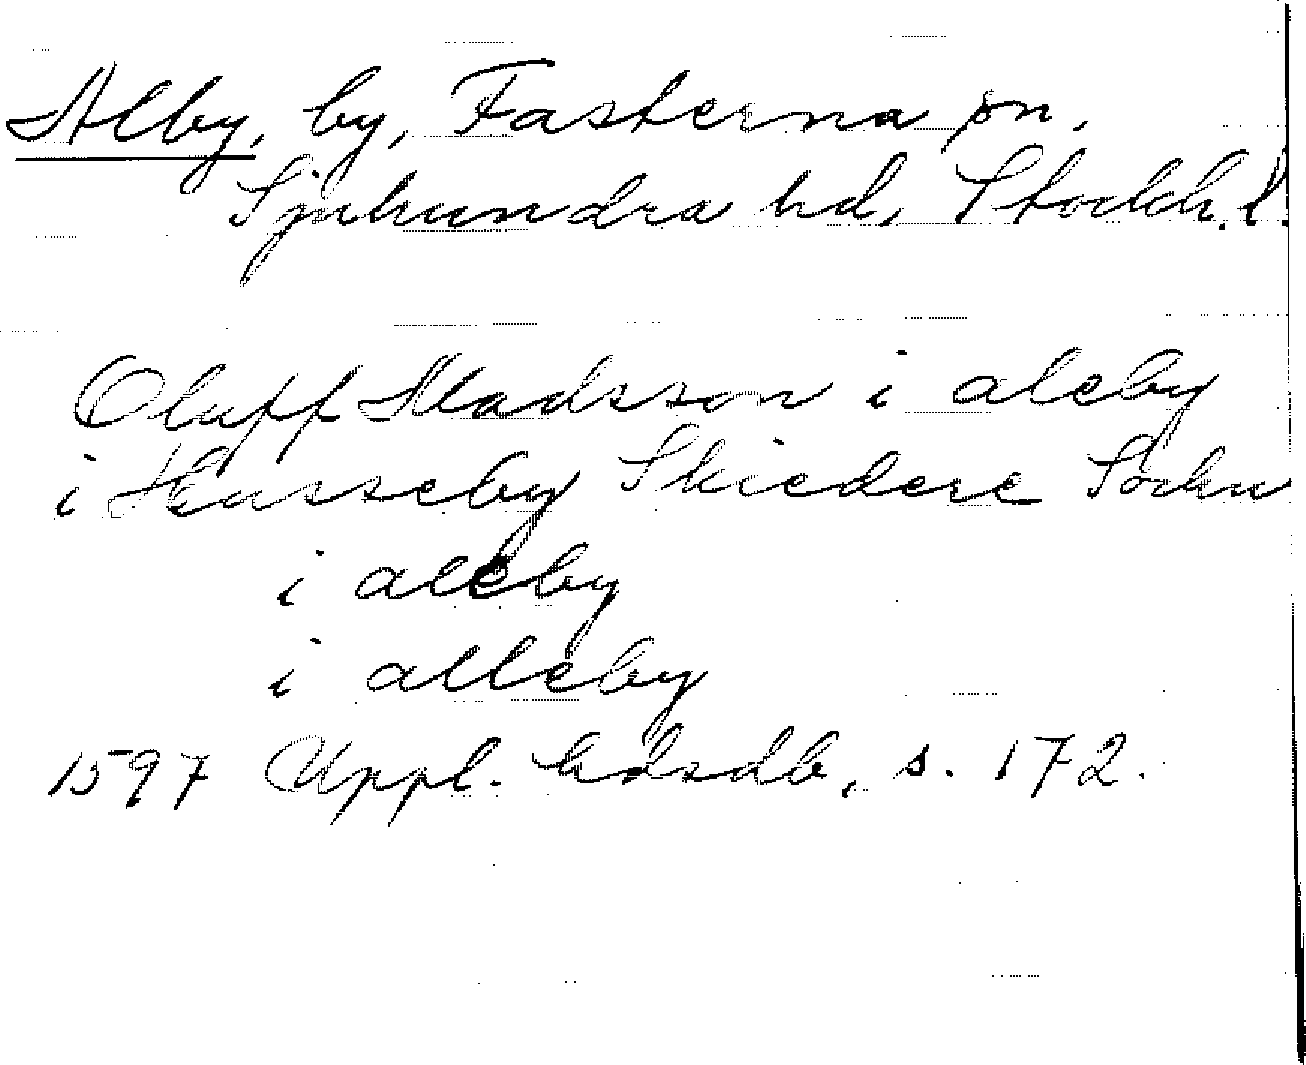 Alby, by, Fasterna sn,
Sjuhundra hd, Stockh. l.
Oluff Madsson i aleby
i Husseby Skiedere Sochn
i aleby
i alleby
1597 Uppl. hdsdb, s. 172.